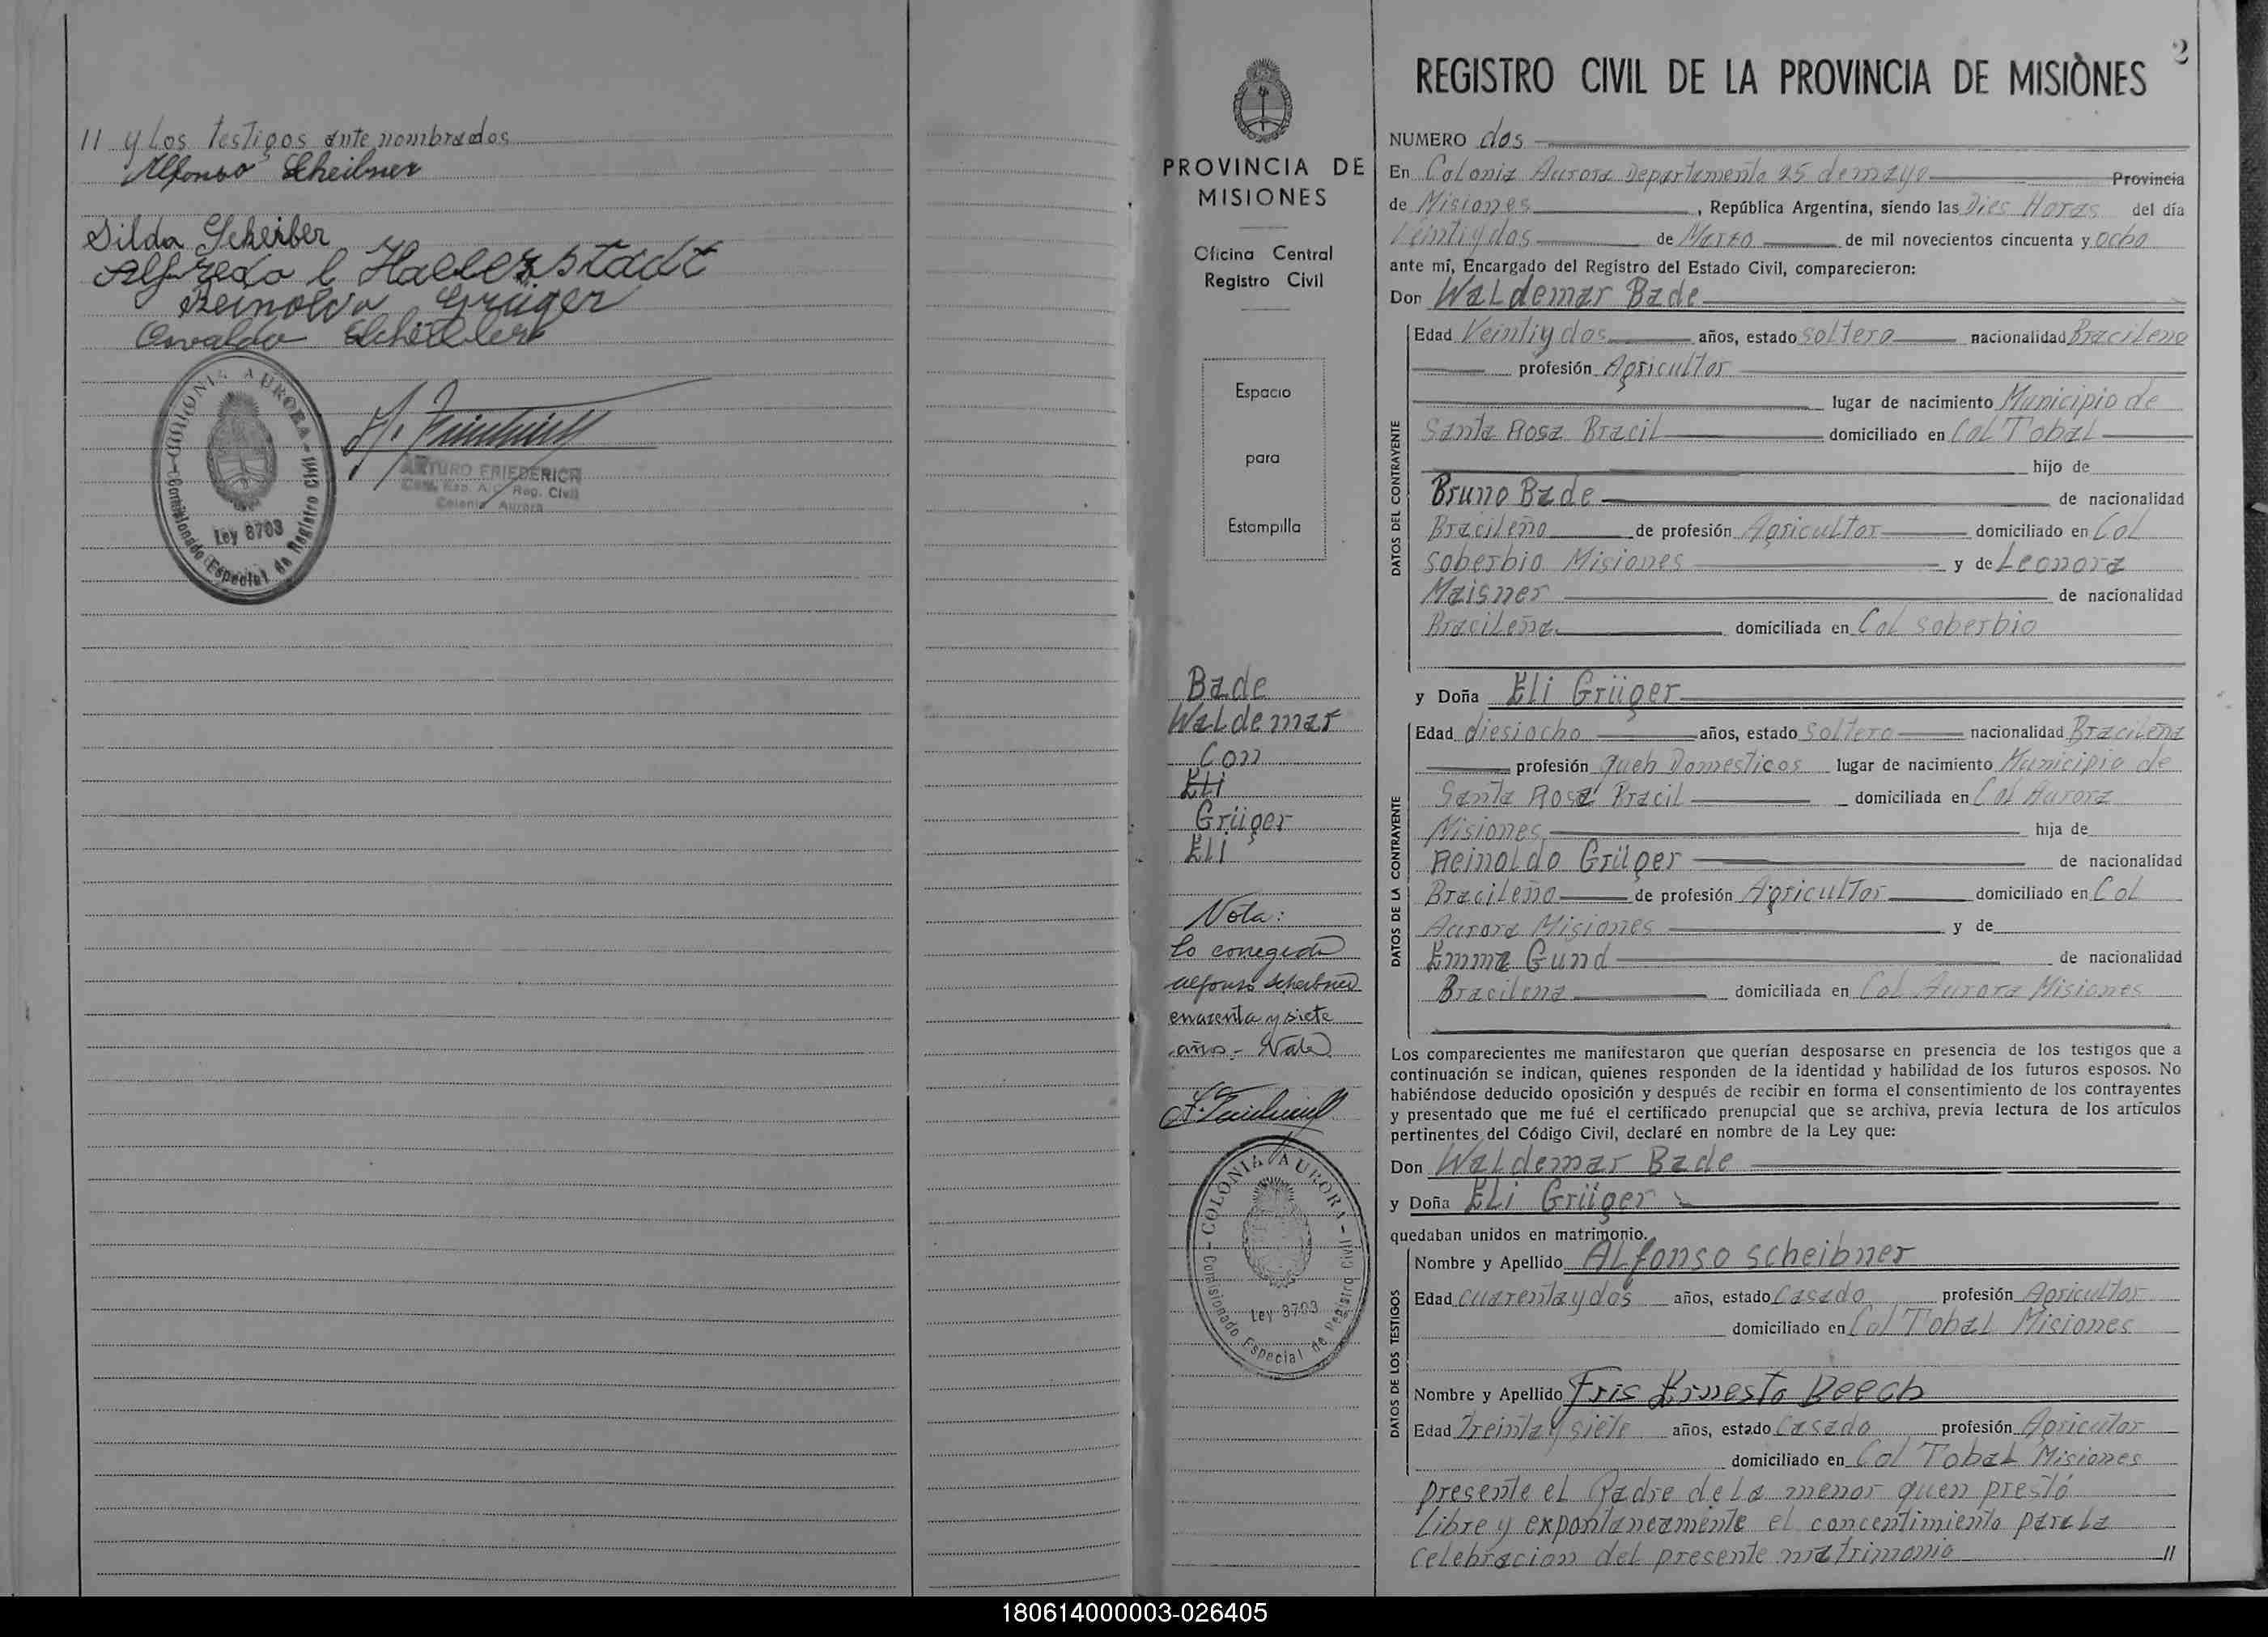 11 y Los testigos ante nombrados
Alfonso Scheibner
Silda Scheiber
Alfredo C Haeeerstadt
Reinoldo Grüger
Osvaldo
COLONIA AURORA
Comisionado Especial de Registro Civil
Ley 8703
ARTURO FRIEDERICH
Com. Esp. A.C. Reg. Civil
Colonia Aurora
PROVINCIA DE
MISIONES
Oficina Central
Registro Civil
Espacio
para
Estampilla
Bade
Waldemar
Con
ELi
Grüger
ELi
Nota:
Lo corregido
Alfonso Scheibner
cuarenta y siete
años - Vale
COLONIA AURORA
Comisionado Especial de Registro Civil
Ley 8703
2
REGISTRO CIVIL DE LA PROVINCIA DE MISIÒNES
NUMERO dos
En Colonia Aurora Departamento 25 de mayo Provincia
de Misiones, República Argentina, siendo las Dies Horas del día
Veintiydos de Marzo de mil novecientos cincuenta y ocho
ante mí, Encargado del Registro del Estado Civil, comparecieron:
Don WaLdemar Bade
DATOS DEL CONTRAYENTE
Edad Veintiydos años, estado soltero nacionalidad BraciLeno
profesión Agricultor
lugar de nacimiento Municipio de
Santa Rosa Bracil domiciliado en Col Tobal
hijo de
Bruno Bade de nacionalidad
Bracileño de profesión Agricultor domiciliado en Col
soberbio Misiones y de Leonora
Maisner de nacionalidad
BraciLeña domiciliada en Col soberbio
y Doña ELi Grüger
DATOS DE LA CONTRAYENTE
Edad diesiocho años, estado Soltero nacionalidad BraciLeña
profesión queh Domesticos lugar de nacimiento Municipio de
Santa Rosa Bracil domiciliada en Col Aurora
Misiones hija de
ReinoLdo Grüger de nacionalidad
BraciLeño de profesión Agricultor domiciliado en Col
Aurora Misiones y de
Emma Gund de nacionalidad
Bracilena domiciliada en Col Aurora Misiones
Los comparecientes me manifestaron que querían desposarse en presencia de los testigos que a
continuación se indican, quienes responden de la identidad y habilidad de los futuros esposos. No
habiéndose deducido oposición y después de recibir en forma el consentimiento de los contrayentes
y presentado que me fué el certificado prenupcial que se archiva, previa lectura de los artículos
pertinentes del Código Civil, declaré en nombre de la Ley que:
Don WaLdemar Bade
y Doña ELi Grüger
quedaban unidos en matrimonio.
DATOS DE LOS TESTIGOS
Nombre y Apellido ALfonso scheibner
Edad cuarentaydos años, estado Casado profesión Agricultor
domiciliado en Col Tobal Misiones
Nombre y Apellido Fris Ernesto Beech
Edad Treinta y siete años, estado Casado profesión Agricutor
domiciliado en Col Tobal Misiones
presente el Padre de La menor quen prestó
Libre y expontaneamente el concentimiento para La
celebracion del presente matrimonio 11
180614000003-026405